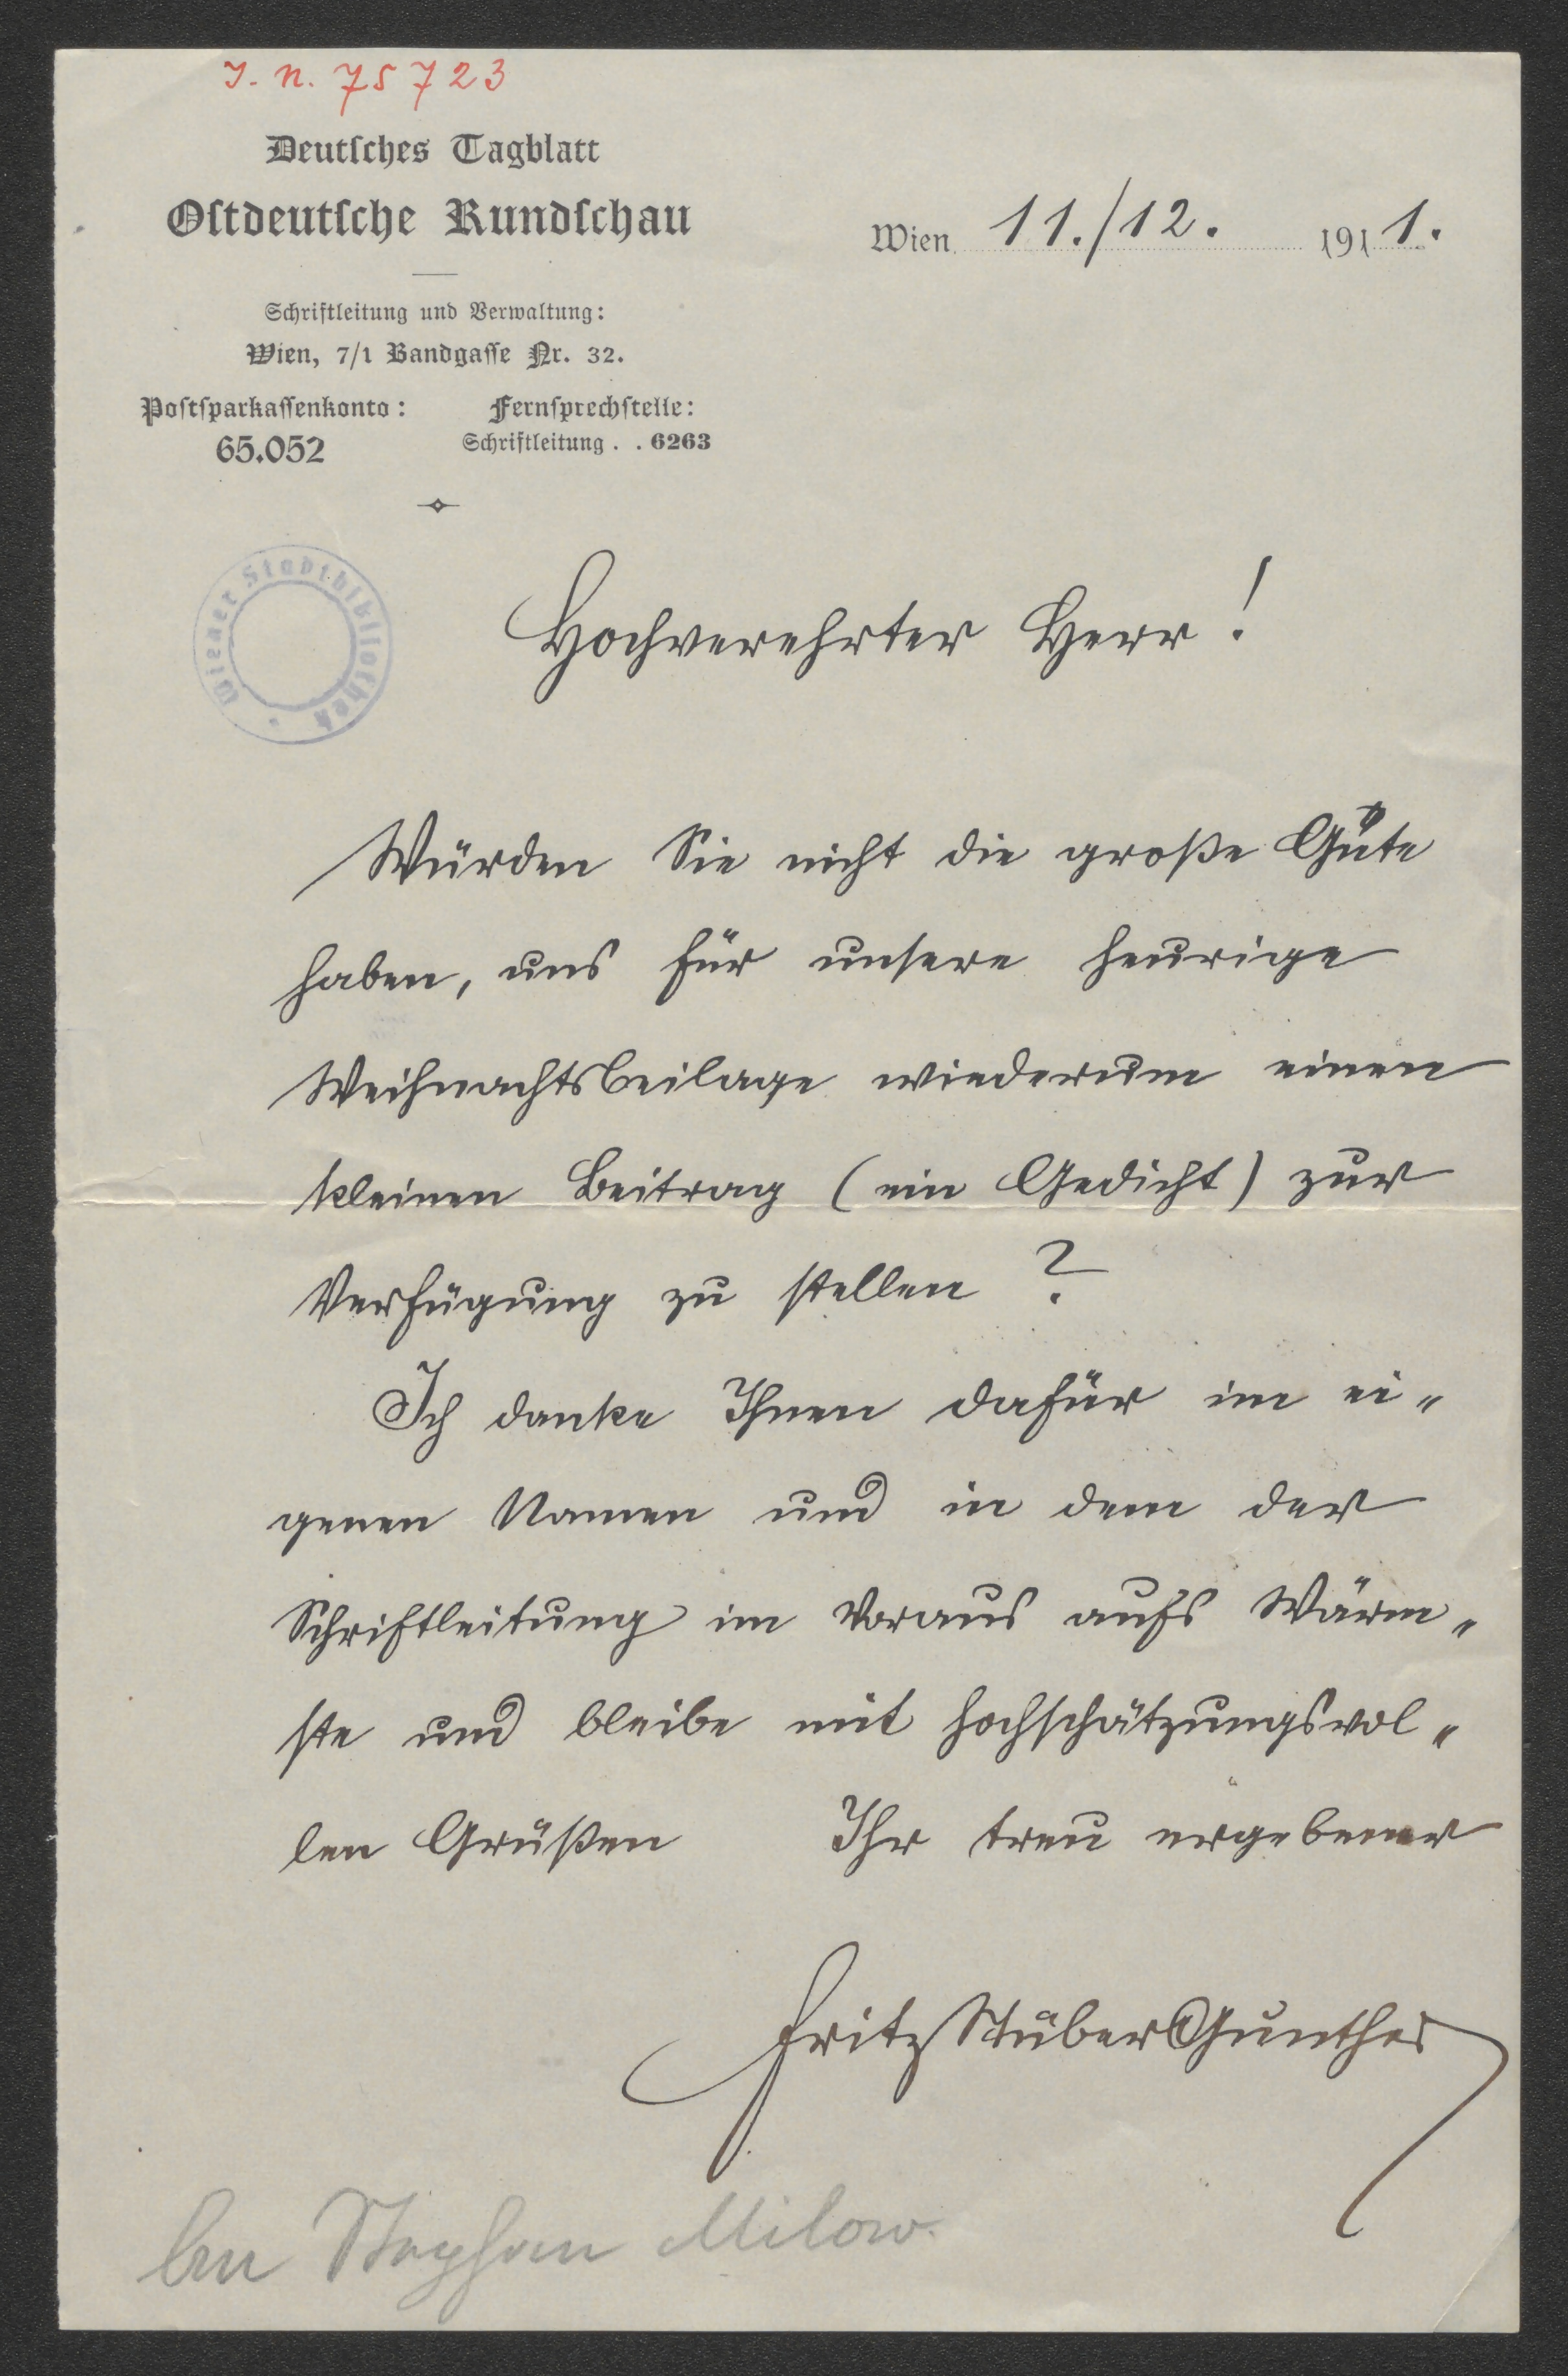 J. N. 75723
Deutsches Tagblatt
Ostdeutsche Rundschau
Wien 11./12. 1911.
Schriftleitung und Verwaltung:
Wien, 7/1 Bandgasse Nr. 32.
Postsparkassenkonto: Fernsprechstelle:
65.052 Schriftleitung . . 6263
Wiener Stadtbibliothek
Hochverehrter Herr!
Würden Sie nicht die große Güte
haben, uns für unsere heurige
Weihnachtsbeilage wiederum einen
kleinen Beitrag (ein Gedicht) zur
Verfügung zu stellen?
Ich danke Ihnen dafür im ei-
genen Namen und in dem der
Schriftleitung im Voraus aufs Wärm-
ste und bleibe mit hochschätzungsvol-
len Grüßen Ihr treu ergebener
Fritz Stüber Gunther
An Stephan Milow.